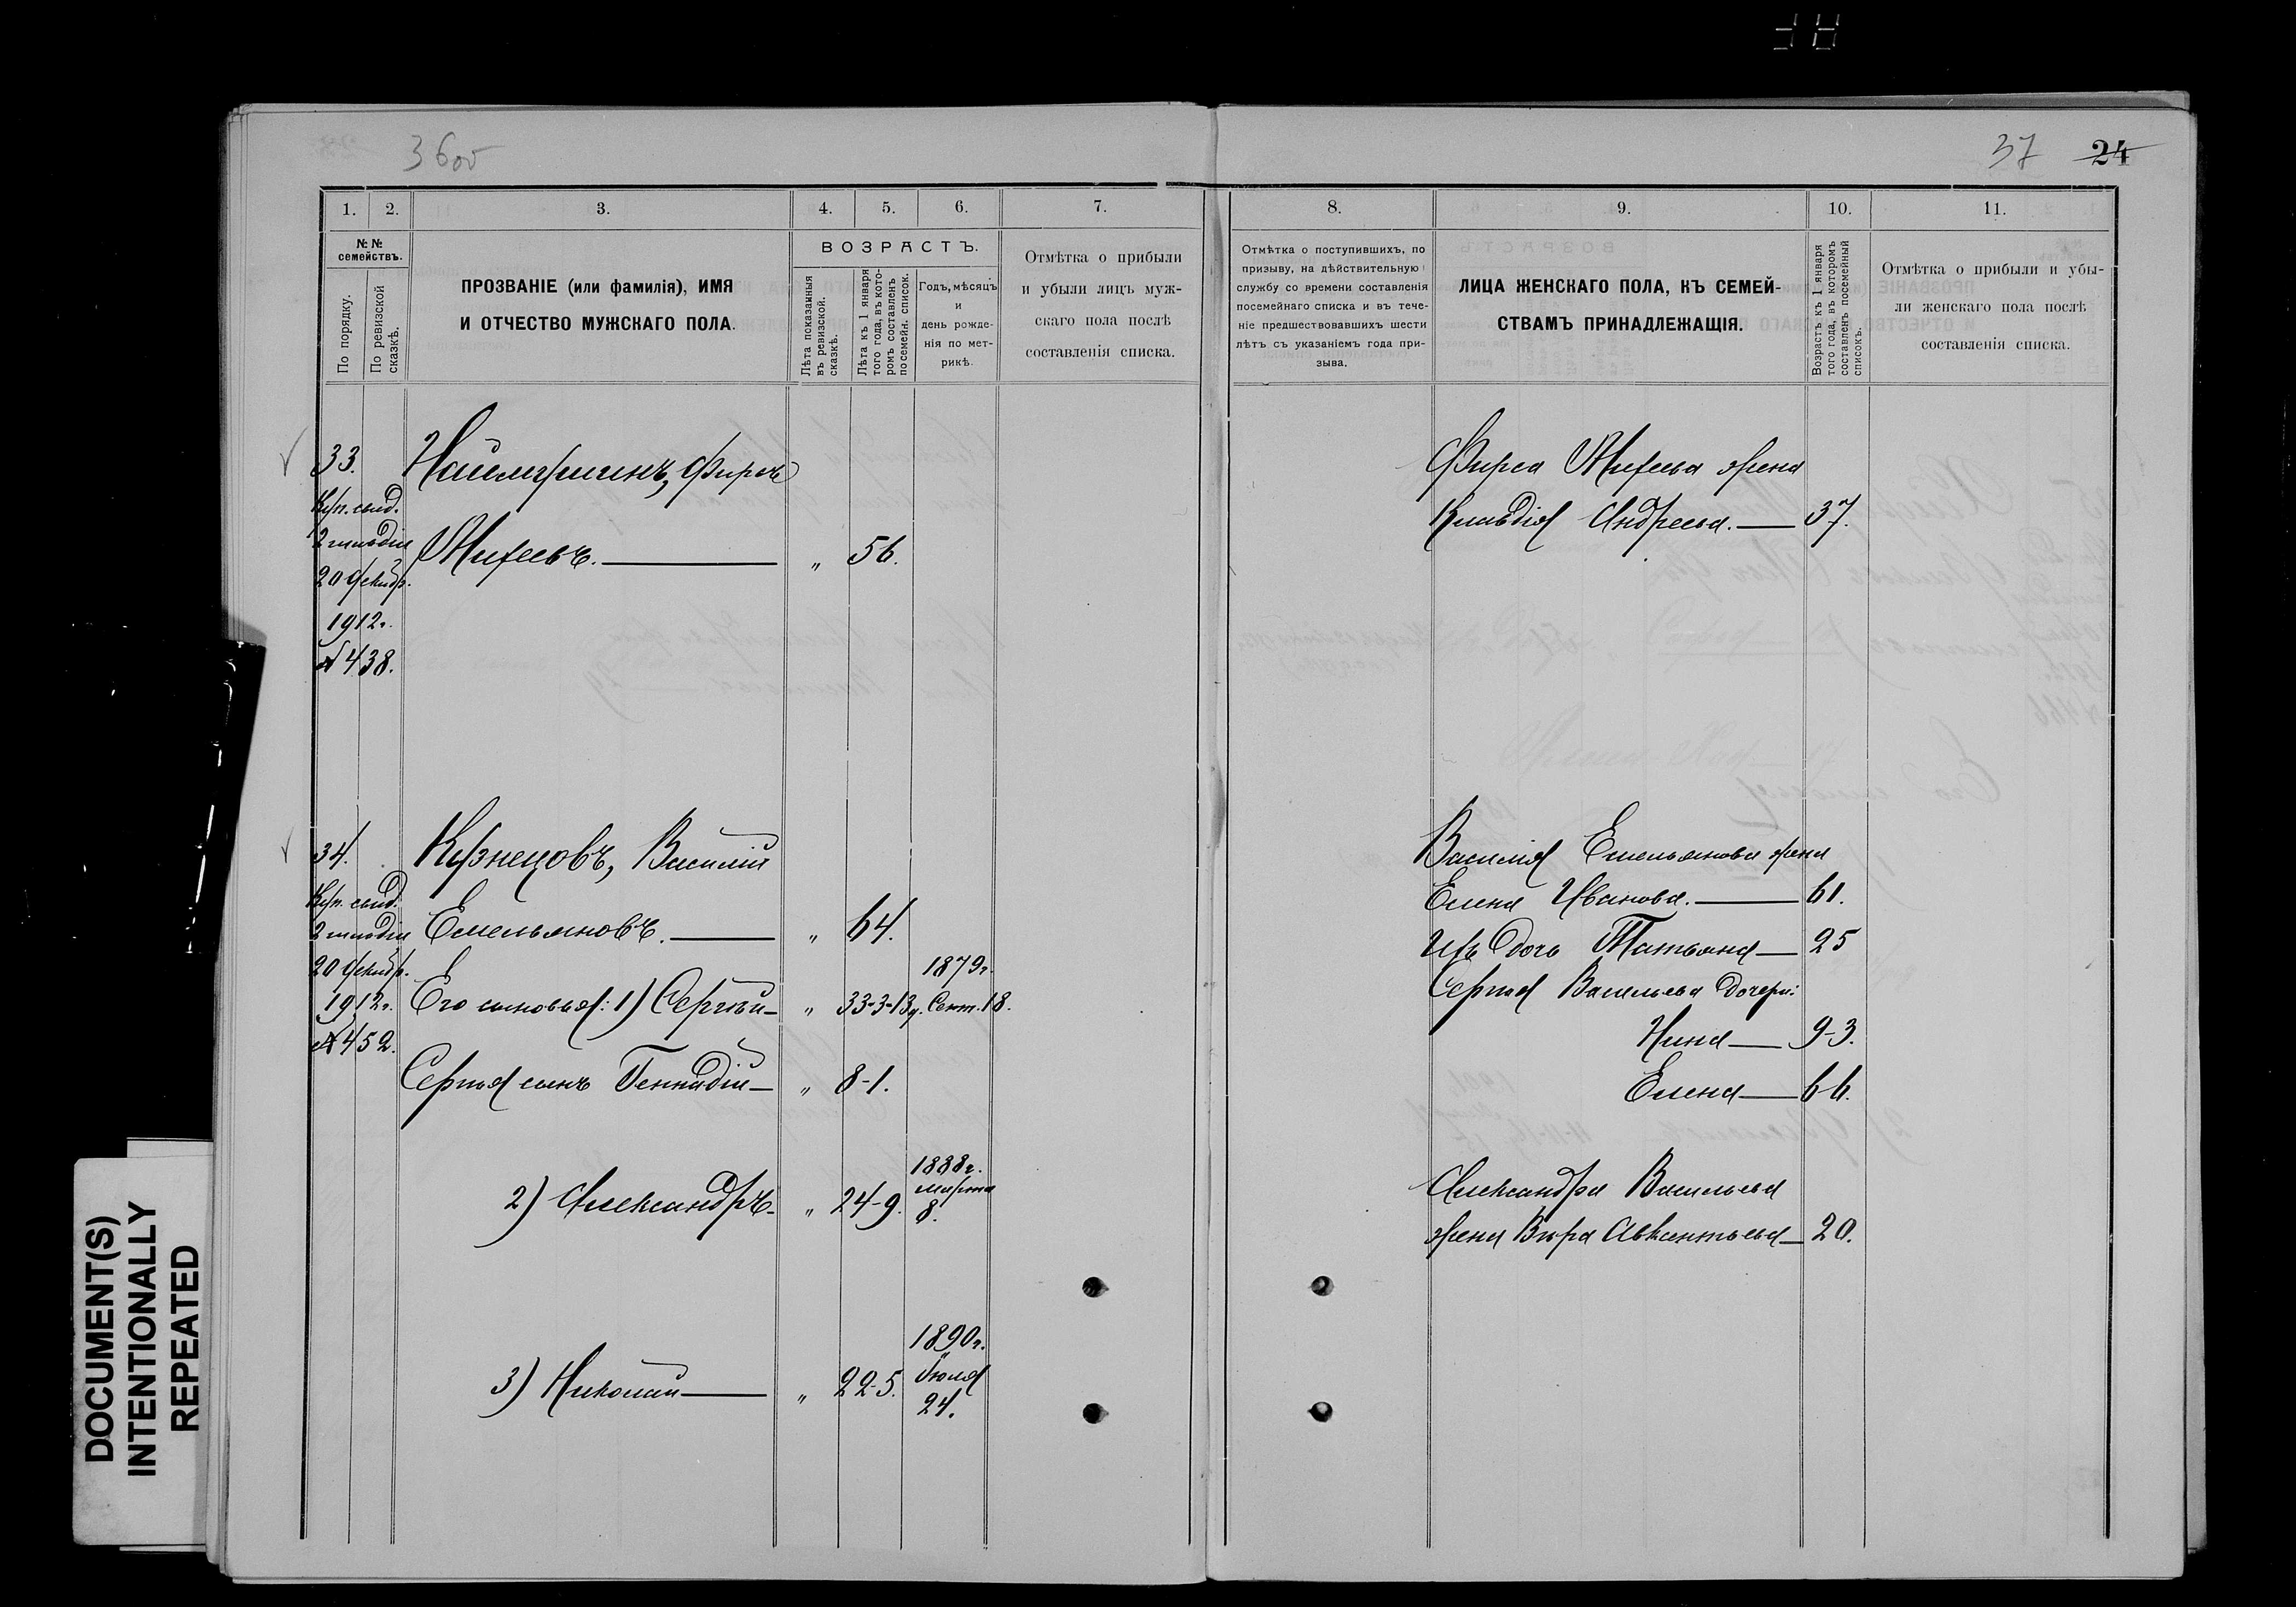 36об
37 24
1. 2. 3. 4. 5. 6. 7.
№ №
семействъ.
По порядку.
По ревизской
сказкѣ.
ПРОЗВАНІЕ (или фамилія), ИМЯ
И ОТЧЕСТВО МУЖСКАГО ПОЛА.
ВОЗРАСТЪ.
Лѣта показанныя
въ ревизской.
сказкѣ.
Лѣта къ 1 января
того года, въ кото-
ромъ составленъ
посемейн. список.
Годъ, мѣсяцъ
и
день рожде-
нія по мет-
рикѣ.
Отмѣтка о прибыли
и убыли лицъ муж-
скаго пола послѣ
составленія списка.
33.
Куп. свид.
2 гильдіи
20 Декабр.
1912 г.
№ 438.
Фирсъ
Михеевъ. — " 56.
34.
Куп. свид.
2 гильдіи
20 Декабр.
1912 г.
№ 452.
Кузнецовъ, Василій
Емельяновъ. — " 64.
1879 г.
Его сыновья: 1) Сергѣй — " 33-3-13д. Сент. 18.
Сергѣя сынъ Геннадій — " 8-1.
1888 г.
2) Александръ — " 24-9. марта
8.
1890 г.
3) Николай — " 22-5. Іюля
24.
8. 9. 10. 11.
Отмѣтка о поступившихъ, по
призыву, на дѣйствительную
службу со времени составленія
посемейнаго списка и въ тече-
ніе предшествовавшихъ шести
лѣтъ съ указаніемъ года при-
зыва.
ЛИЦА ЖЕНСКАГО ПОЛА, КЪ СЕМЕЙ-
СТВАМЪ ПРИНАДЛЕЖАЩІЯ.
Возрастъ къ 1 января
того года, въ которомъ
составленъ посемейный
списокъ.
Отмѣтка о прибыли и убы-
ли женскаго пола послѣ
составленія списка.
Фирса Михеева жена
Клавдія Андреева. — 37.
Василія Емельянова жена
Елена Иванова. — 61.
Ихъ дочь Татьяна — 25
Сергѣя Васильева дочери:
Нина — 9-3.
Елена — 6 6.
Александра Васильева
жена Вѣра Авксентьева — 20.
DOCUMENT(S)
INTENTIONALLY
REPEATED